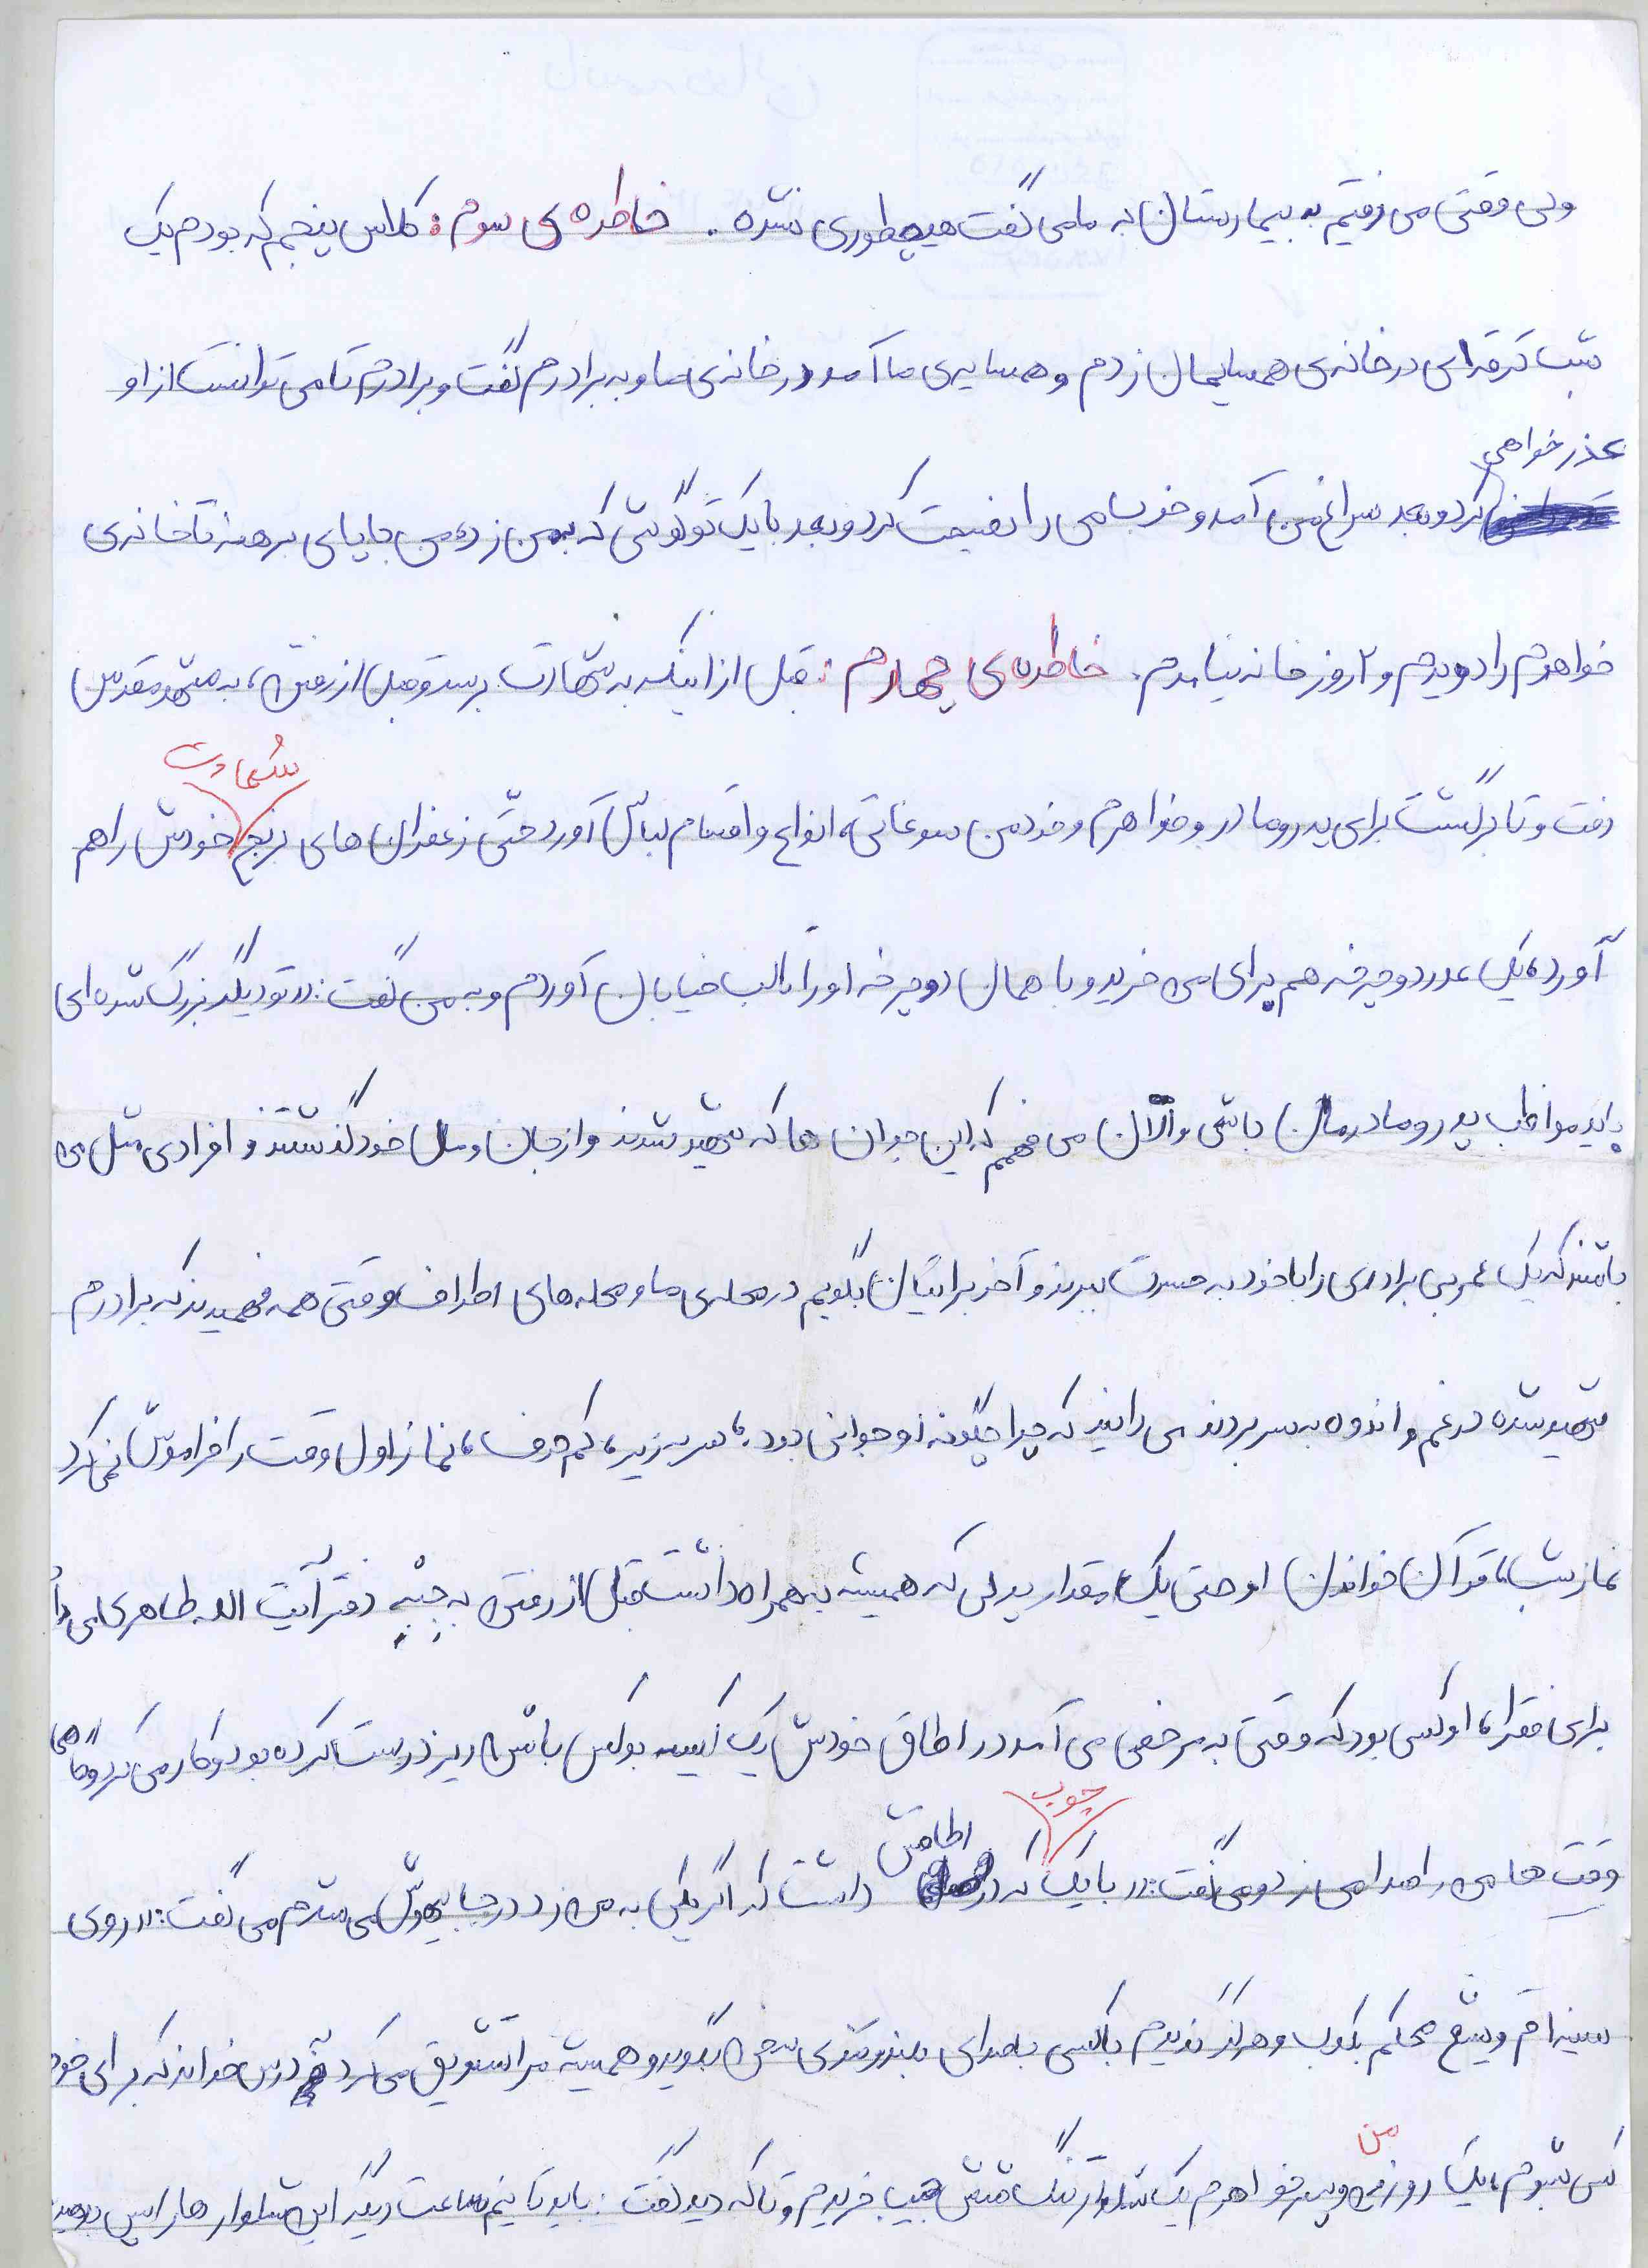 ولی وقتی می رفتیم به بیمارستان به مامی گفت هیچطوری نشده. خاطره ی سوم: کلاس پنجم که بودم یک
شب ترقه ای در خانه ی همسایمان زدم و همسایه ی ما آمد در خانه ی ما و به برادرم گفت و برادرم تا می توانست از او
عذر خواهی
کرد و بعد سراغ من آمد و خوب مامی را نصیحت کرد و بعد با یک تو گوشی که به من زد من با پای برهنه تا خانه ی
خواهرم را دویدم و ۲ روز خانه نیامدم. خاطره ی چهارم: قبل از اینکه به شهادت برسد و قبل از رفتن، به مشهد مقدس
شهادت
رفت و تا برگشت برای پدر و مادر و خواهرم و خود من سوغاتی انواع و اقسام لباس آورد حتّی زعفران های برنج خودش را هم
آورد، یک عدد دوچرخه هم برای من خرید و با همان دوچرخه او را تا لب خیابان آوردم و به من گفت: «تو دیگر بزرگ شده ای
باید مواظب پدر و مادرمان باشی و الآن می فهمم که این جوان ها که شهید شدند و از جان و مال خود گذشتند و افرادی مثل من
باشند که یک عمر بی برادری را با خود به حسرت ببرند و آخر برایتان بگویم در محله ی ما و محله های اطراف وقتی همه فهمیدند که برادرم
شهید شده در غم و اندوه به سر بردند می دانید که چرا چگونه نوجوانی بود؛ سر به زیر، کم حرف، نماز اول وقت را فراموش نمی کرد
نماز شب، قرآن خواندن او حتی یک مقدار پولی که همیشه به همراه داشت قبل از رفتن به جبهه دفتر آیت الله طاهری می داد
برای فقرا، او کسی بود که وقتی به مرخصی می آمد در اطاق خودش یک کیسه بوکس با شن ریز درست کرده بود و کار می کرد و گاهی
چوب
اطاقش
وقت ها من را صدا می زد و می گفت: «با یک که در داشت که اگر یکی به من زد در جا بیهوش می شدم می گفت: «روی
سینه ام محکم بکوب و هرگز ندیدم با کسی با صدای بلند و تندی سخن بگوید و همیشه مرا تشویق می کرد درس خواند که برای خود
من
کسی شوم، یک روز من و پسر خواهرم یک شلوار تنگ شش جیب خریدم و تا که دید گفت: باید تا نیم ساعت دیگر این شلوار ها را پس بدهید